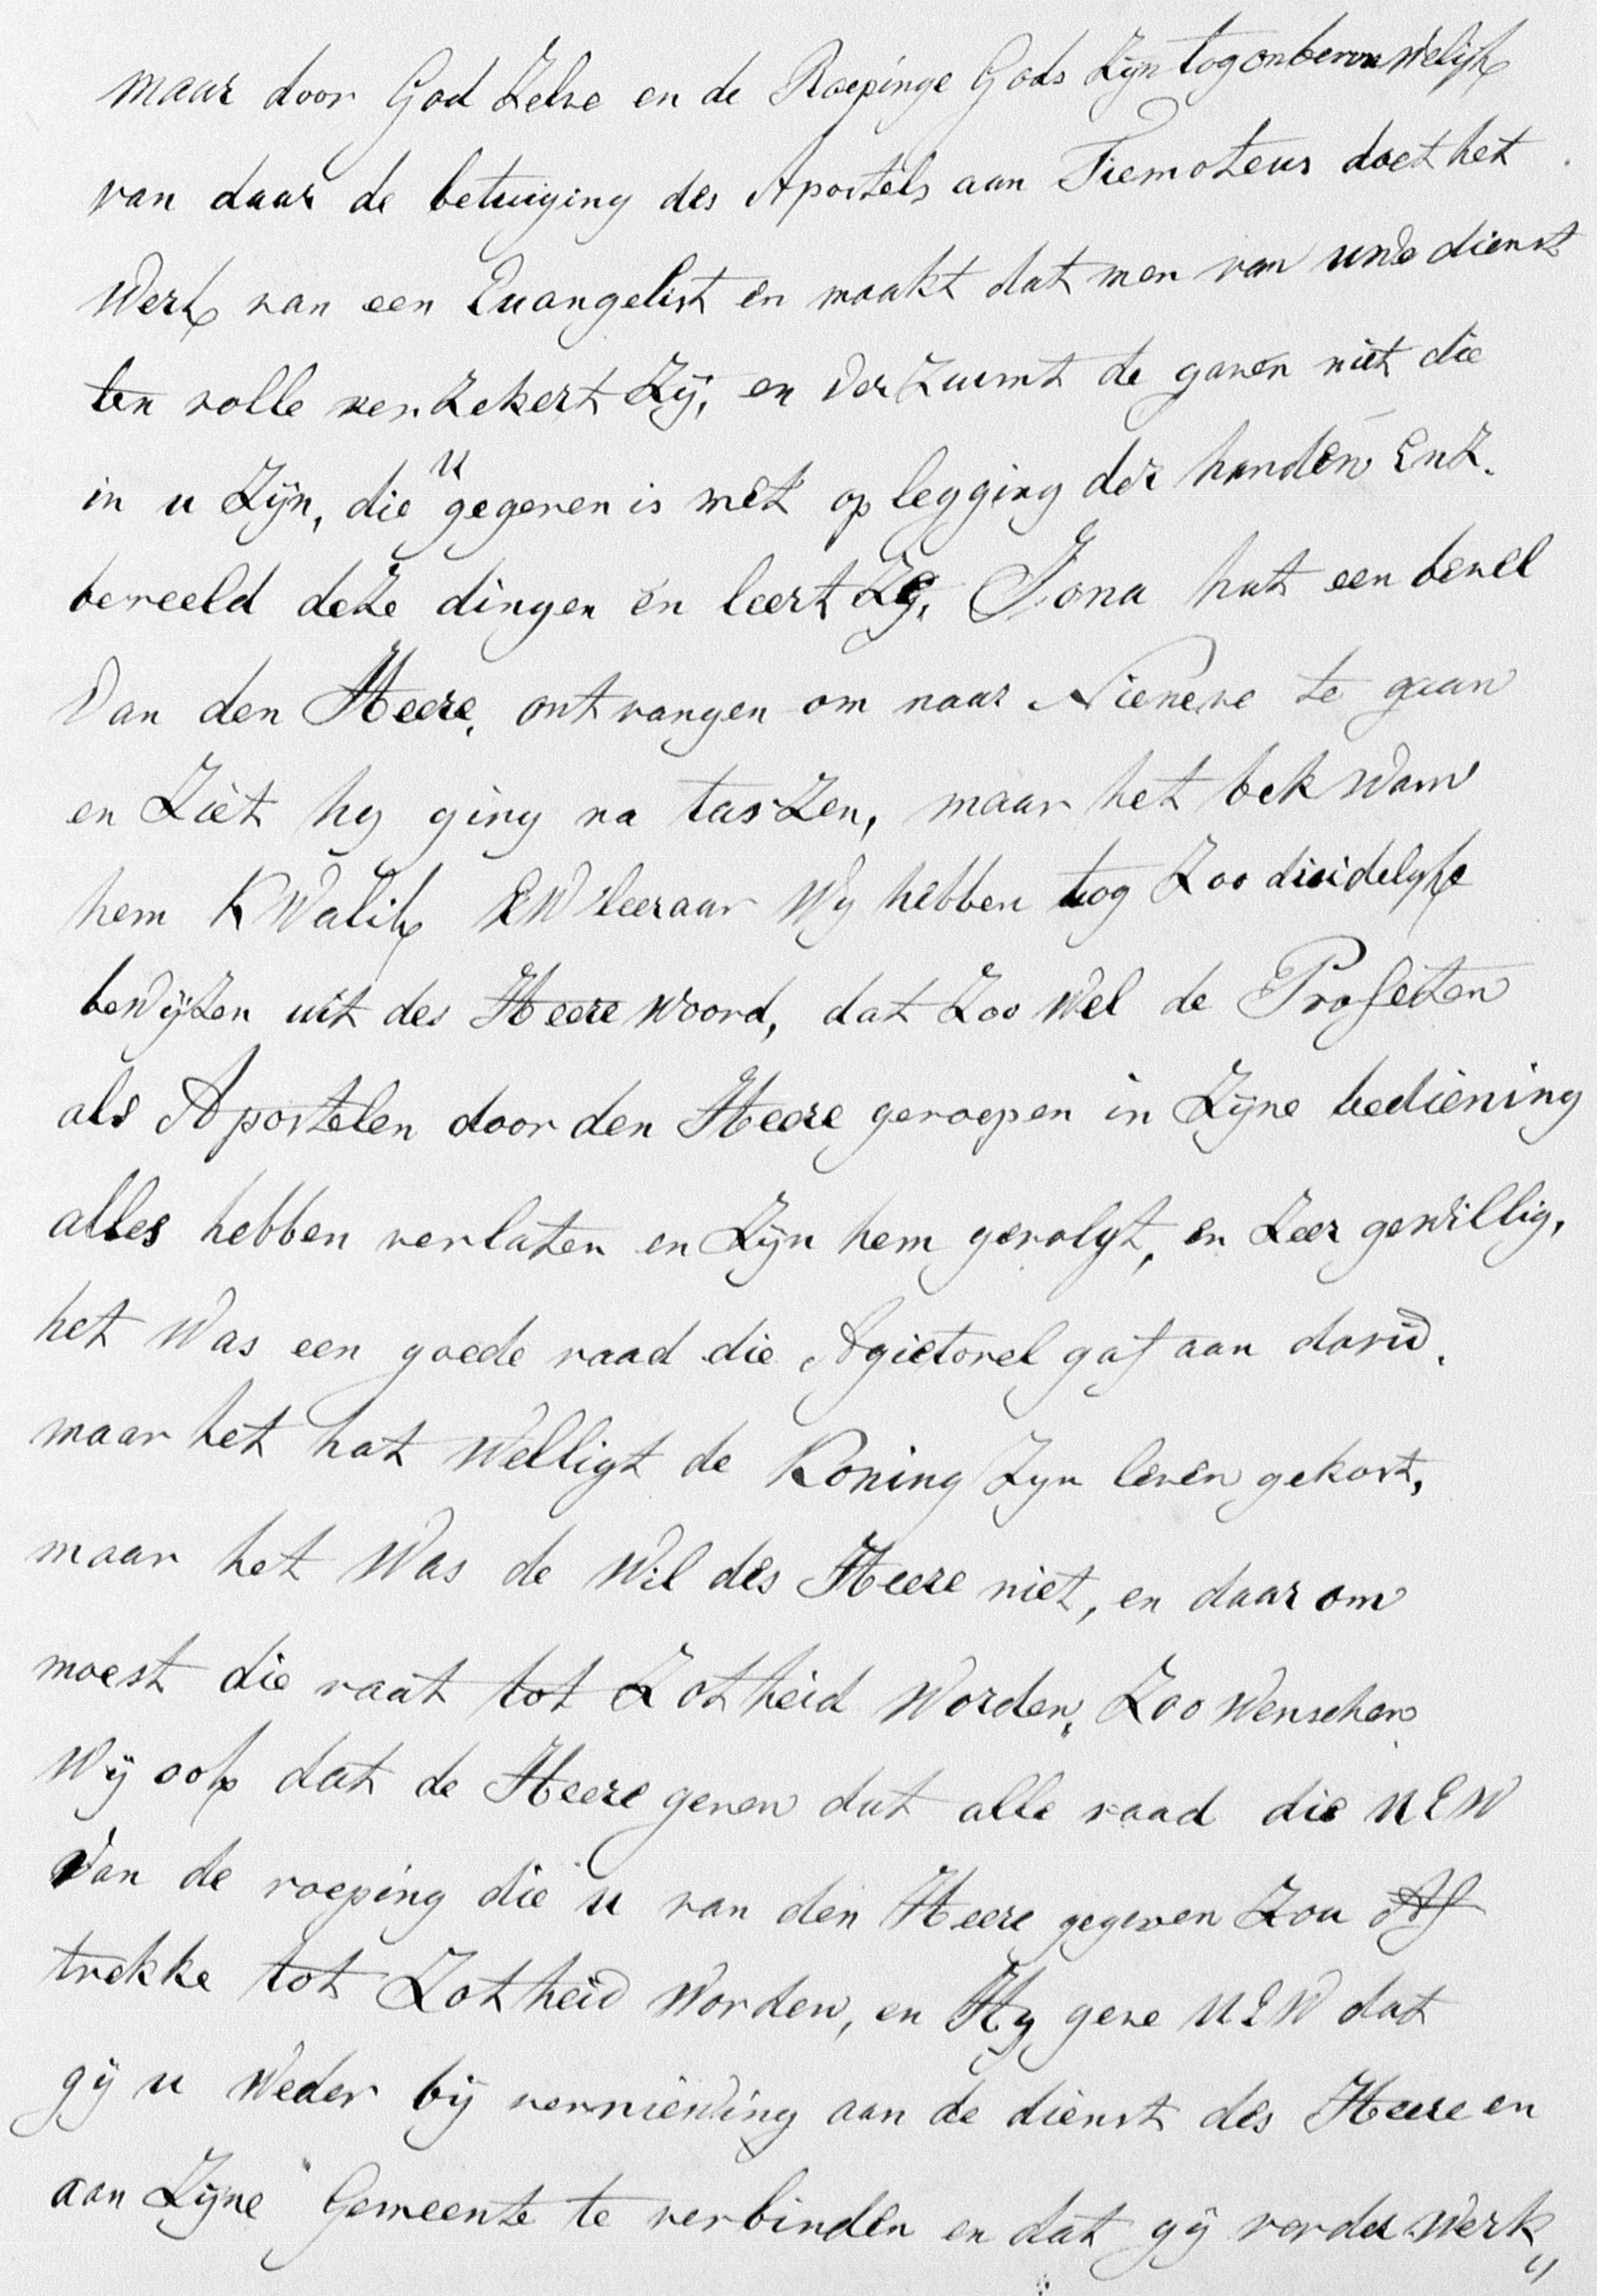 maar door God Zelve en de Roepinge Gods Zijn tog onberouwelijk
van daar de betuiging des Apostels aan Tiemoteus doet het
Werk van een Euangelist en maakt dat men van uwe dienst
ten volle verzekert Zij, en verzuimt de gaven niet die
in u Zijn, die u gegeven is met oplegging der handen Enz.
beveeld deze dingen en leert Ze, Jona hat een bevel
Van den Heere, ontvangen om naar Nieneve te gaan
en Ziet hy ging na tasZen, maar het bekwam
hem KWalik EW leeraar Wy hebben tog Zoo duidelyke
beWijzen uit des Heere woord, dat Zoo Wel de Profeten
als Apostelen door den Heere geroepen in Zijne bediening
alles hebben verlaten en Zijn hem gevolgt, en Zeer gewillig,
het Was een goede raad die Agietovel gaf aan david.
maar het hat Welligt de Koning Zyn leven gekost,
maar het Was de Wil des Heere niet, en daarom
moest die raat tot Zotheid Worden, Zoo Wenschen
Wij ook dat de Heere geven dat alle raad die UEW
Van de roeping die u van den Heere gegeven Zou Af
trekke tot Zotheid Worden, en Hy geve UEW dat
gij u Weder bij vernieWing aan de dienst des Heere en
aan Zijne Gemeente te verbinden en dat gij verder Werk„